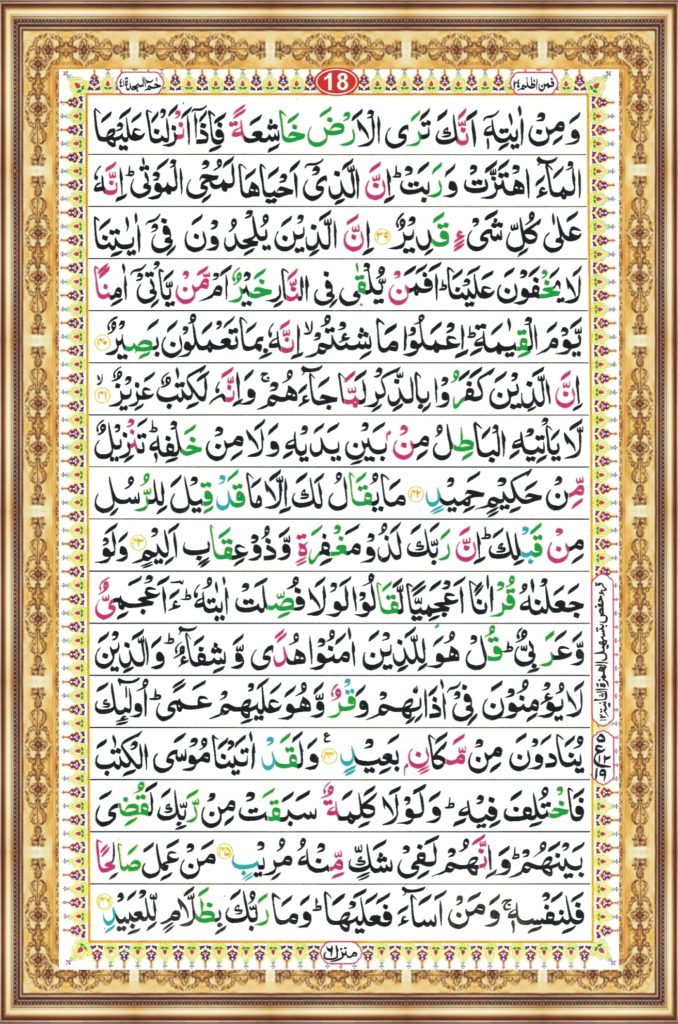 فمن اظلم ٢٤
18
حٰم السجدة ٤١
وَمِنْ اٰيٰتِهٖٓ اَنَّكَ تَرَى الْاَرْضَ خَاشِعَةً فَاِذَآ اَنْزَلْنَا عَلَيْهَا
الْمَآءَ اهْتَزَّتْ وَرَبَتْ ؕ اِنَّ الَّذِيْٓ اَحْيَاهَا لَمُحْيِ الْمَوْتٰى ؕ اِنَّهٗ
عَلٰى كُلِّ شَيْءٍ قَدِيْرٌ ﴿۳۹﴾ اِنَّ الَّذِيْنَ يُلْحِدُوْنَ فِيْٓ اٰيٰتِنَا
لَا يَخْفَوْنَ عَلَيْنَا ؕ اَفَمَنْ يُّلْقٰى فِي النَّارِ خَيْرٌ اَمْ مَّنْ يَّاْتِيْٓ اٰمِنًا
يَّوْمَ الْقِيٰمَةِ ؕ اِعْمَلُوْا مَا شِئْتُمْ ۙ اِنَّهٗ بِمَا تَعْمَلُوْنَ بَصِيْرٌ ﴿۴۰﴾
اِنَّ الَّذِيْنَ كَفَرُوْا بِالذِّكْرِ لَمَّا جَآءَهُمْ ۚ وَاِنَّهٗ لَكِتٰبٌ عَزِيْزٌ ﴿۴۱﴾ ۙ
لَّا يَاْتِيْهِ الْبَاطِلُ مِنْۢ بَيْنِ يَدَيْهِ وَلَا مِنْ خَلْفِهٖ ؕ تَنْزِيْلٌ
مِّنْ حَكِيْمٍ حَمِيْدٍ ﴿۴۲﴾ مَا يُقَالُ لَكَ اِلَّا مَا قَدْ قِيْلَ لِلرُّسُلِ
مِنْ قَبْلِكَ ؕ اِنَّ رَبَّكَ لَذُوْ مَغْفِرَةٍ وَّذُوْ عِقَابٍ اَلِيْمٍ ﴿۴۳﴾ وَلَوْ
جَعَلْنٰهُ قُرْاٰنًا اَعْجَمِيًّا لَّقَالُوْا لَوْلَا فُصِّلَتْ اٰيٰتُهٗ ؕ ءَاَعْجَمِيٌّ
وَّعَرَبِيٌّ ؕ قُلْ هُوَ لِلَّذِيْنَ اٰمَنُوْا هُدًى وَّشِفَآءٌ ؕ وَالَّذِيْنَ
لَا يُؤْمِنُوْنَ فِيْٓ اٰذَانِهِمْ وَقْرٌ وَّهُوَ عَلَيْهِمْ عَمًى ؕ اُولٰٓئِكَ
يُنَادَوْنَ مِنْ مَّكَانٍۢ بَعِيْدٍ ﴿۴۴﴾ وَلَقَدْ اٰتَيْنَا مُوْسَى الْكِتٰبَ
فَاخْتُلِفَ فِيْهِ ؕ وَلَوْلَا كَلِمَةٌ سَبَقَتْ مِنْ رَّبِّكَ لَقُضِيَ
بَيْنَهُمْ ؕ وَاِنَّهُمْ لَفِيْ شَكٍّ مِّنْهُ مُرِيْبٍ ﴿۴۵﴾ مَنْ عَمِلَ صَالِحًا
فَلِنَفْسِهٖ ۚ وَمَنْ اَسَآءَ فَعَلَيْهَا ؕ وَمَا رَبُّكَ بِظَلَّامٍ لِّلْعَبِيْدِ ﴿۴۶﴾
منزل ٦